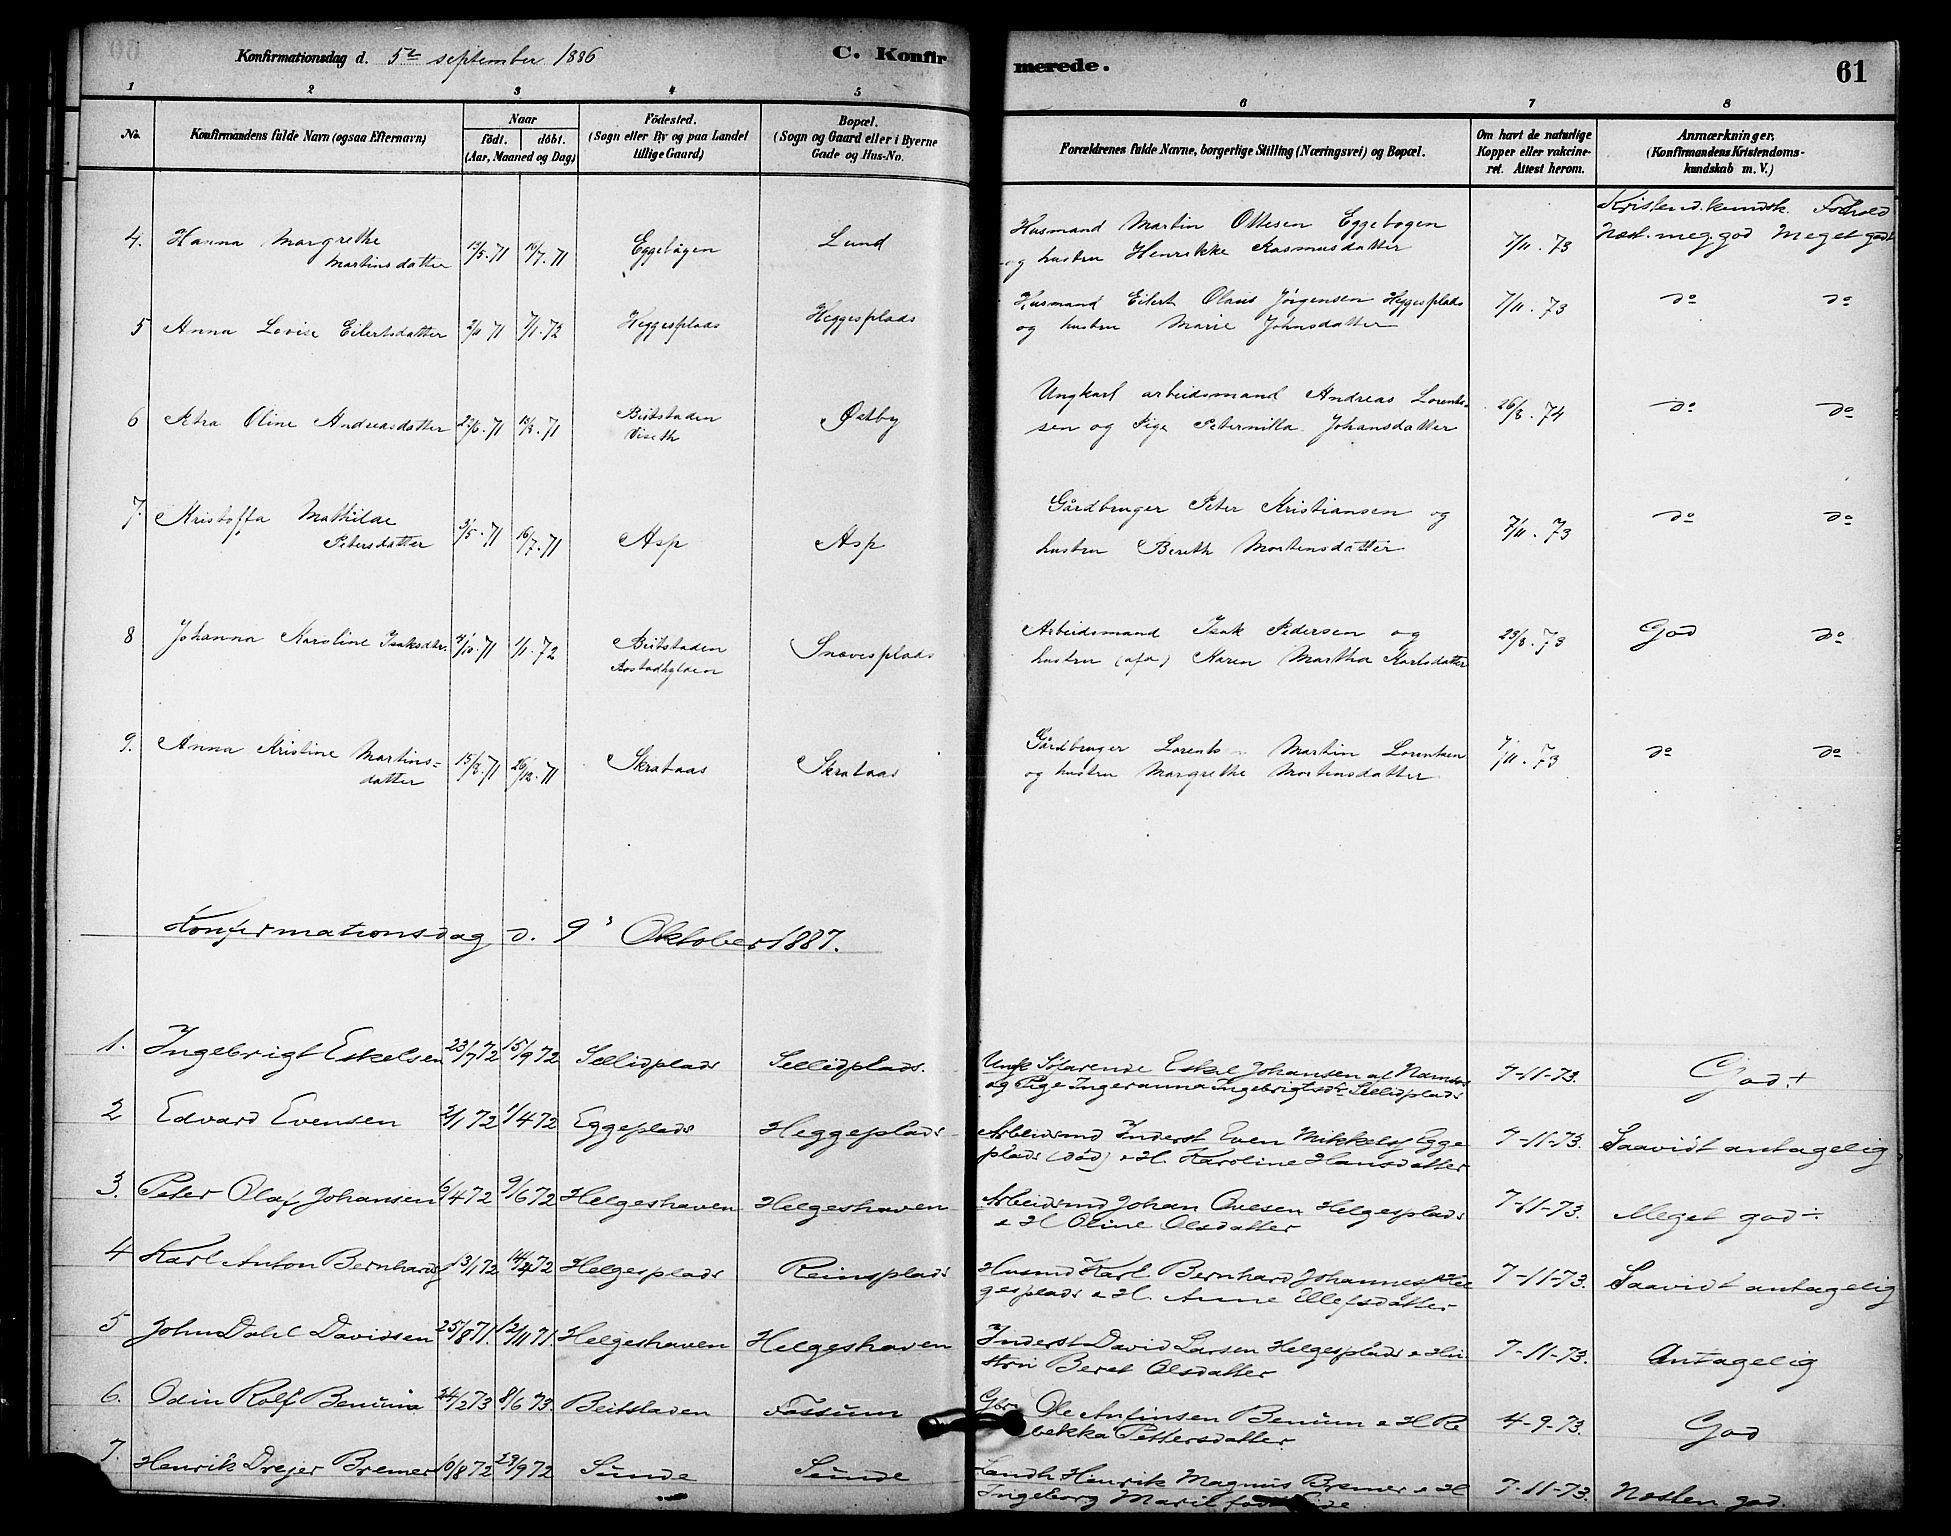 Konfirmationsdag d. 5te september 1886 C. Konfirmerede. 61
1 2 3 4 5 6 7 8
No. Konfirmandens fulde Navn (ogsaa Efternavn) Naar födt. döbt. (Aar, Maaned og Dag) Födested. (Sogn eller By og paa Landet tillige Gaard) Bopæl. (Sogn og Gaard eller i Byerne Gade og Hus-No. Forældrenes fulde Navne, borgerlige Stilling (Næringsvei) og Bopæl. Om havt de naturlige Kopper eller vakcineret. Attest herom. Anmærkninger. (Konfirmandens Kristendomskundskab m. V.)
Kristend.kundsk. Forhold
4. Hanna Margrethe Eggebogen Lund Husmand Martin Ottesen Eggebogen Næst. meg. god Meget godt
Martinsdatter 71 71 og hustru Henrikke Rasmusdatter 7/11. 73
5 Anna Lovise Eilertsdatter 2/11 71 7/1. 72 Heggesplads Heggesplads Husmand Eilert Olaus Jørgensen Heggesplads 7/11. 73 do do
og hustru Marie Johnsdatter
6 Petra Oline Andreasdatter 71 71 Beitstaden Østby Ungkarl arbeidsmand Andreas Lorents- 26/8. 74 do do
Viseth sen og Pige Peternilla Johansdatter
7. Kristoffa Mathilde Gårdbruger Peter Kristiansen og do do
Petersdatter 3/5. 71 16/7. 71 Asp Asp hustru Bereth Mortensdatter 7/11. 73
8 Johanna Karoline Isaksdtr. 71 1/1. 72 Beitstaden Snævesplads Arbeidsmand Isak Pedersen og 23/8. 73 God do
hustru Karen Martha Karlsdatter
9. Anna Kristine Martins= Skrataas Skrataas Gårdbruger Lorents Martin Lorentsen 7/11. 73 do do
datter 71 71 og hustru Margrethe Mortensdatter
Konfirmationsdag d. 9de Oktober 1887.
1. Ingebrigt Eskelsen 23/7 72 15/9 72 Sellidplads Sellidplads. Ungk Söfarende Eskel Johansen af Namsos 7-11-73. God +
og Pige Ingeranna Ingebrigtsdr Sellidplads
2 Edvard Evensen 2/1 72 1/4 72 Eggeplads Heggeplads Arbeidsmd Inderst Even Mikkels. Egge 7-11-73. Saavidt antagelig
plads (död) & H. Karoline Hansdatter
3. Peter Olaf Johansen 6/4 72 9/6 72 Helgeshaven Helgeshaven Arbeidsmd Johan Ovesen Helgesplads 7-11-73. Meget god ÷
& H Oline Olsdatter
4 Karl Anton Bernhards. 13/1 72 14/4 72 Helgesplads Reinsplads Husmd Karl Bernhard Johannes. Hel 7-11-73. Saavidt antagelig
gesplads & H. Anne Ellefsdatter
5 John Dahl Davidsen 25/8 71. 12/11 71. Helgeshaven Helgeshaven Inderst David Larsen Helgesplads & Hu 7-11-73. Antagelig
stru Beret Olsdatter
6. Odin Rolf Benum 24/2 73 8/6 73. Beitstaden Fossum Gbr Ole Antinsen Benum & H Re 4-9-73. God
bekka Pettersdatter
7. Henrik Drejer Bremer 10/8 72 29/9 72 Sunde Sunde Landh Henrik Magnus Bremer & H 7-11-73. Næsten god.
Ingeborg Marie